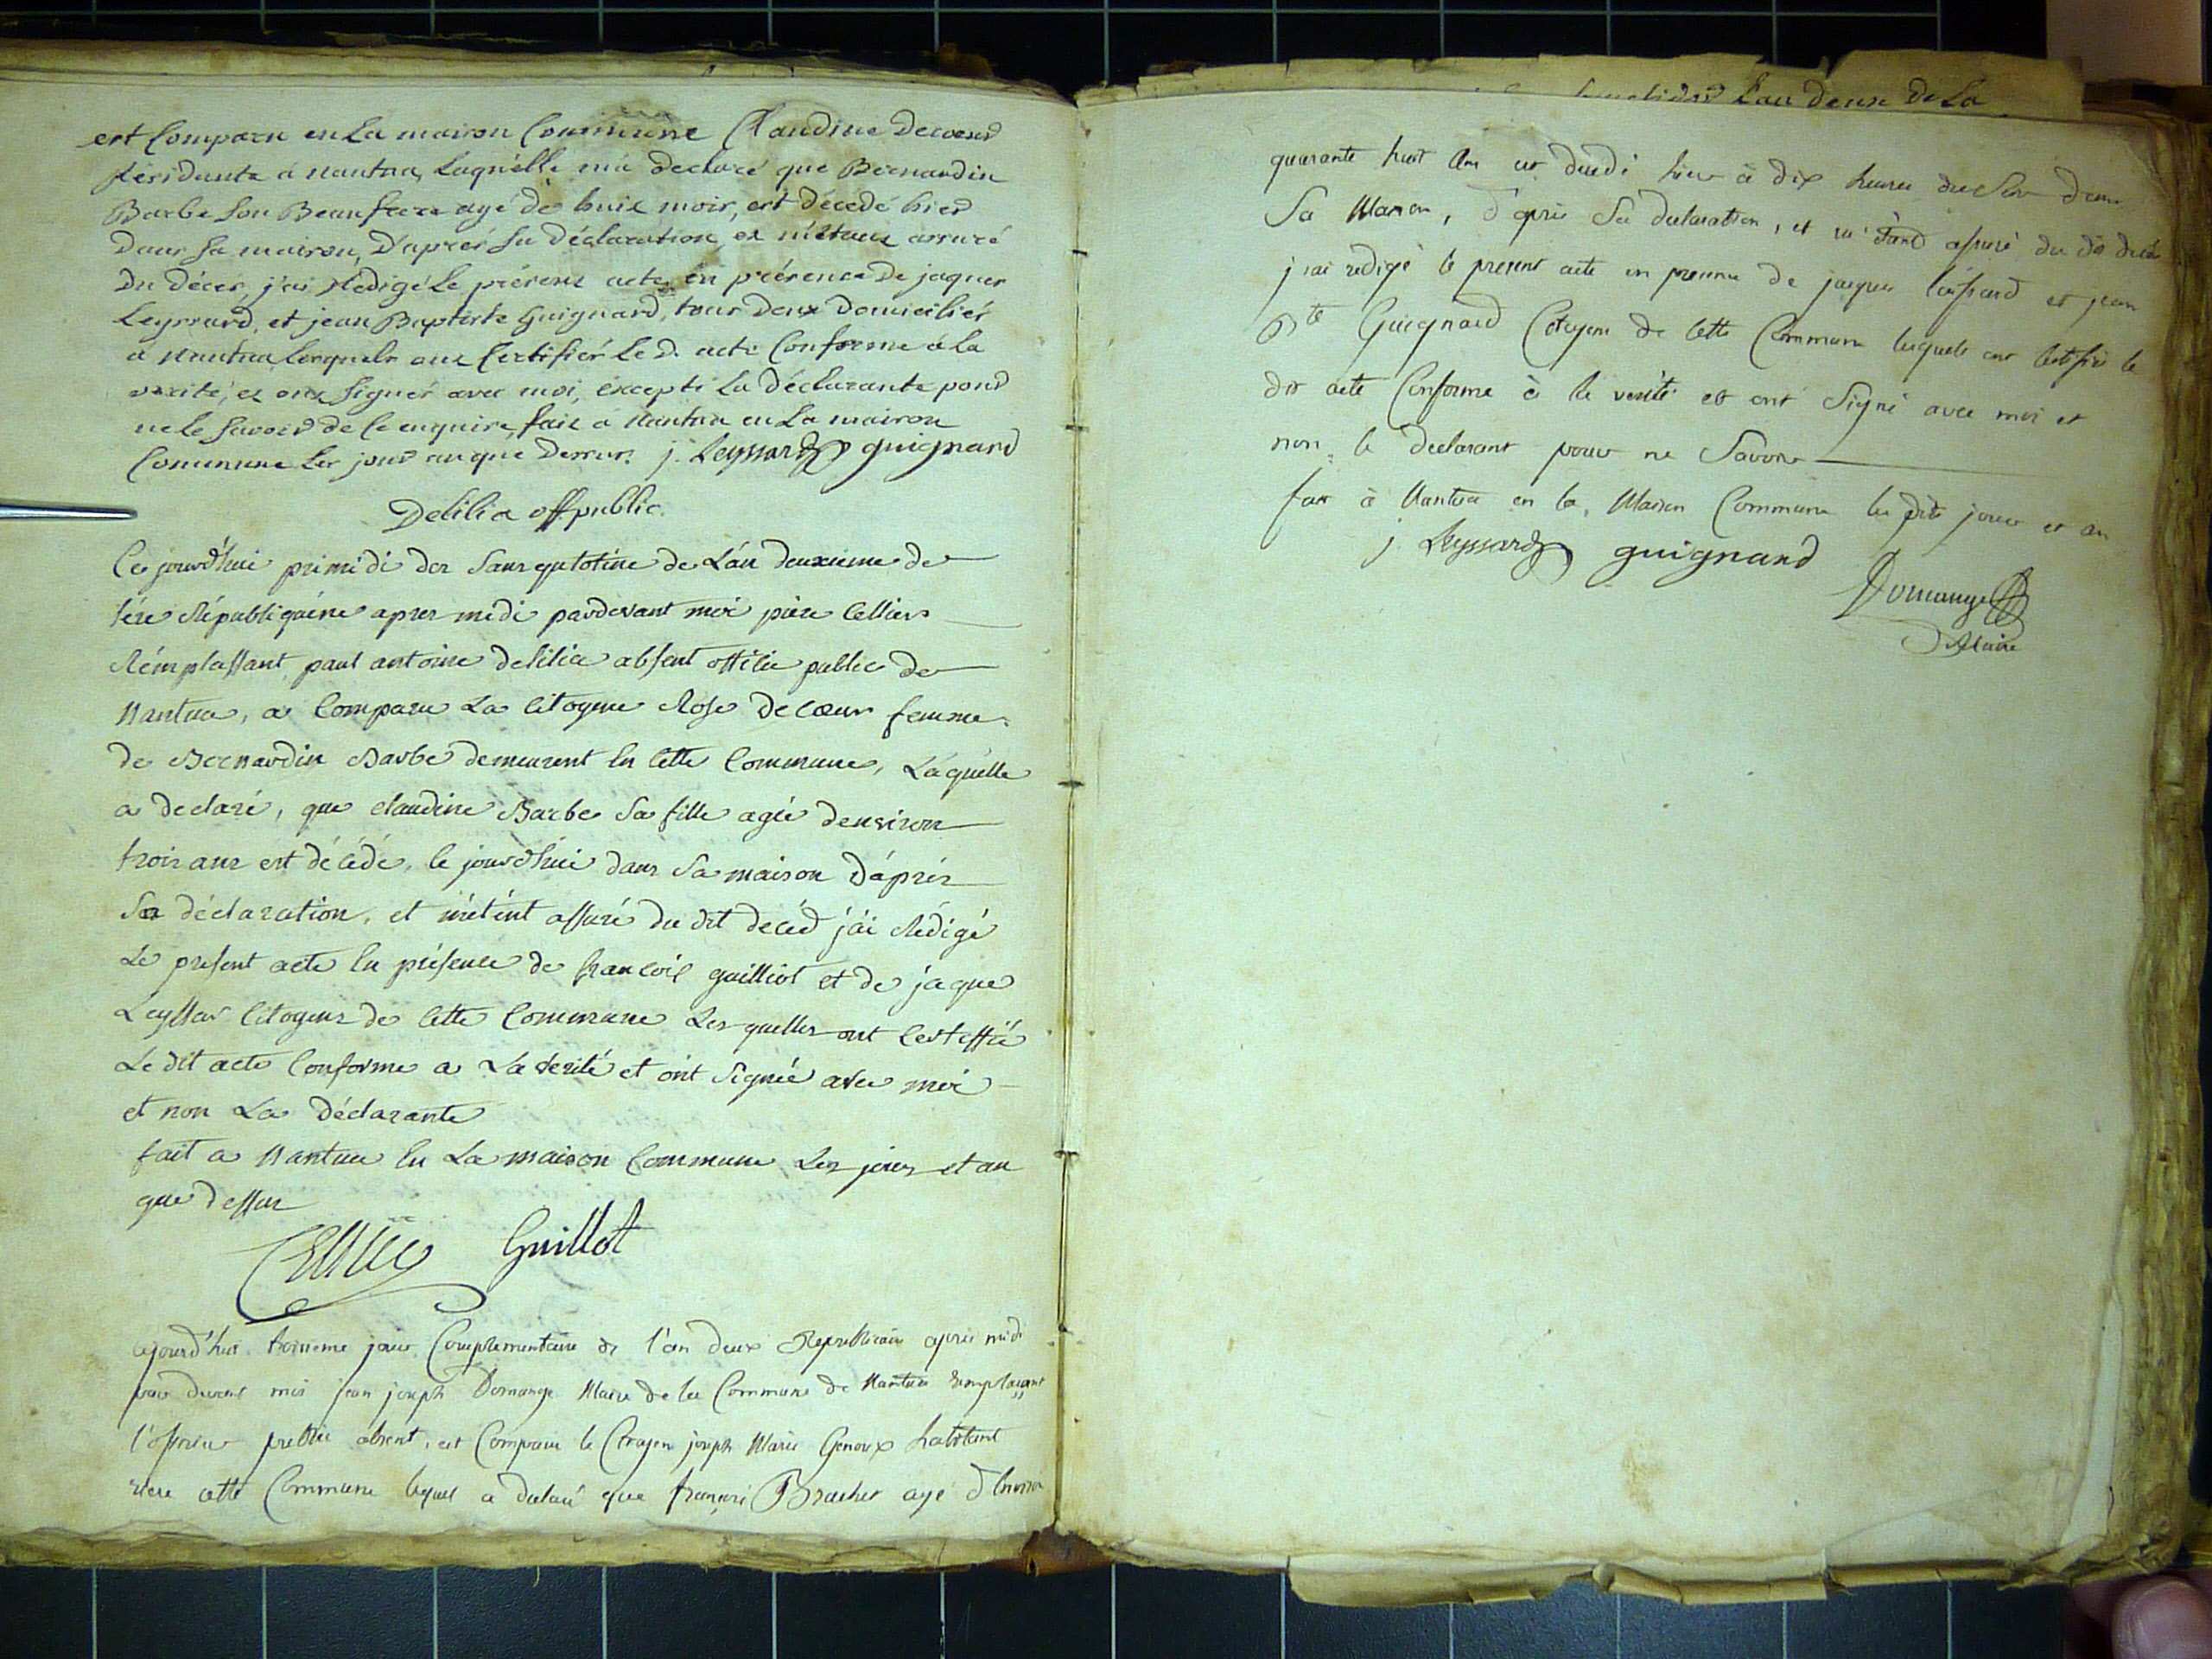 est Comparu en La maison Commune Claudine Decoeur
Résidante à nantua, Laquélle m'a declaré que Bernardin
Barbe son Beau frere agé de huit mois, est décédé hier
dans sa maison, D'après sa déclaration, et m'étant assuré
du décès, j'ai Redigé Le présent acte en présence De jaques
Leyssard, et jean Baptiste Guignard, tous deux Domiciliés
à Nantua Lesquels ont Certifiés Le d. acte Conforme à la
verité, et ont signés avec moi, éxcepté La déclarante pour
ne le savoir de ce enquire, fait à Nantua en La maison
Commune Les jour an que Dessus. j. Leyssard guignard
Delilia off public.
Ce jourd'hui primidi des Sansqulotine de L'an deuxieme de
l'ére Républiquéne apres midi pardevant moi piere Cellier
Rémplassant paul antoine delilia absent officie public de
Nantua, a Comparu La Citoyene Rose decœur femme
de Bernardin Barbe demeurent en Cette Commune, Laquélle
a declaré, que claudine Barbe Sa fille agée denviron
trois ans est décédé, ce jourd'hui dans Sa maison D'après
Sa déclaration, et m'étént assuré du dit decéd j'ái Rédigé
Le present acte en présence de francois guilliot et de jaque
Leyssar Citoyens de Cette Commune Les quelles ont Certiffié
Le dit acte Conforme a La verité et ont Signée avec moi
et non La Déclarante
fait a Nantua en La maison Commune Les jour et an
que dessus
Cellier Guillot
ajourd'hui troisieme jour Complementaire de l'an deux Republicain après midi
par devant moi jean joseph Domange Maire de la Commune de Nantua remplaçant
l'officier public absent, est Comparu le Citoyen joseph Marie Genoux habitant
riere cette Commune lequel a declaré que françois Brachet agé d'Environ
Lan deux de La
quarante huit Ans est decedé hier à dix heures du Soir dans
Sa Maison, d'après Sa declaration, et m'étant assuré du dit decés
j'ai redigé le present acte en presence de jacques Leissard et jean
Bte Guignard Citoyens de Cette Commune lesquels ont Certifié le
dit acte Conforme à la verité et ont Signé avec moi et
non le declarant pour ne Savoir
fait à Nantua en la Maison Commune les dits jour et an
j. Leyssard guignard
Domange
Maire